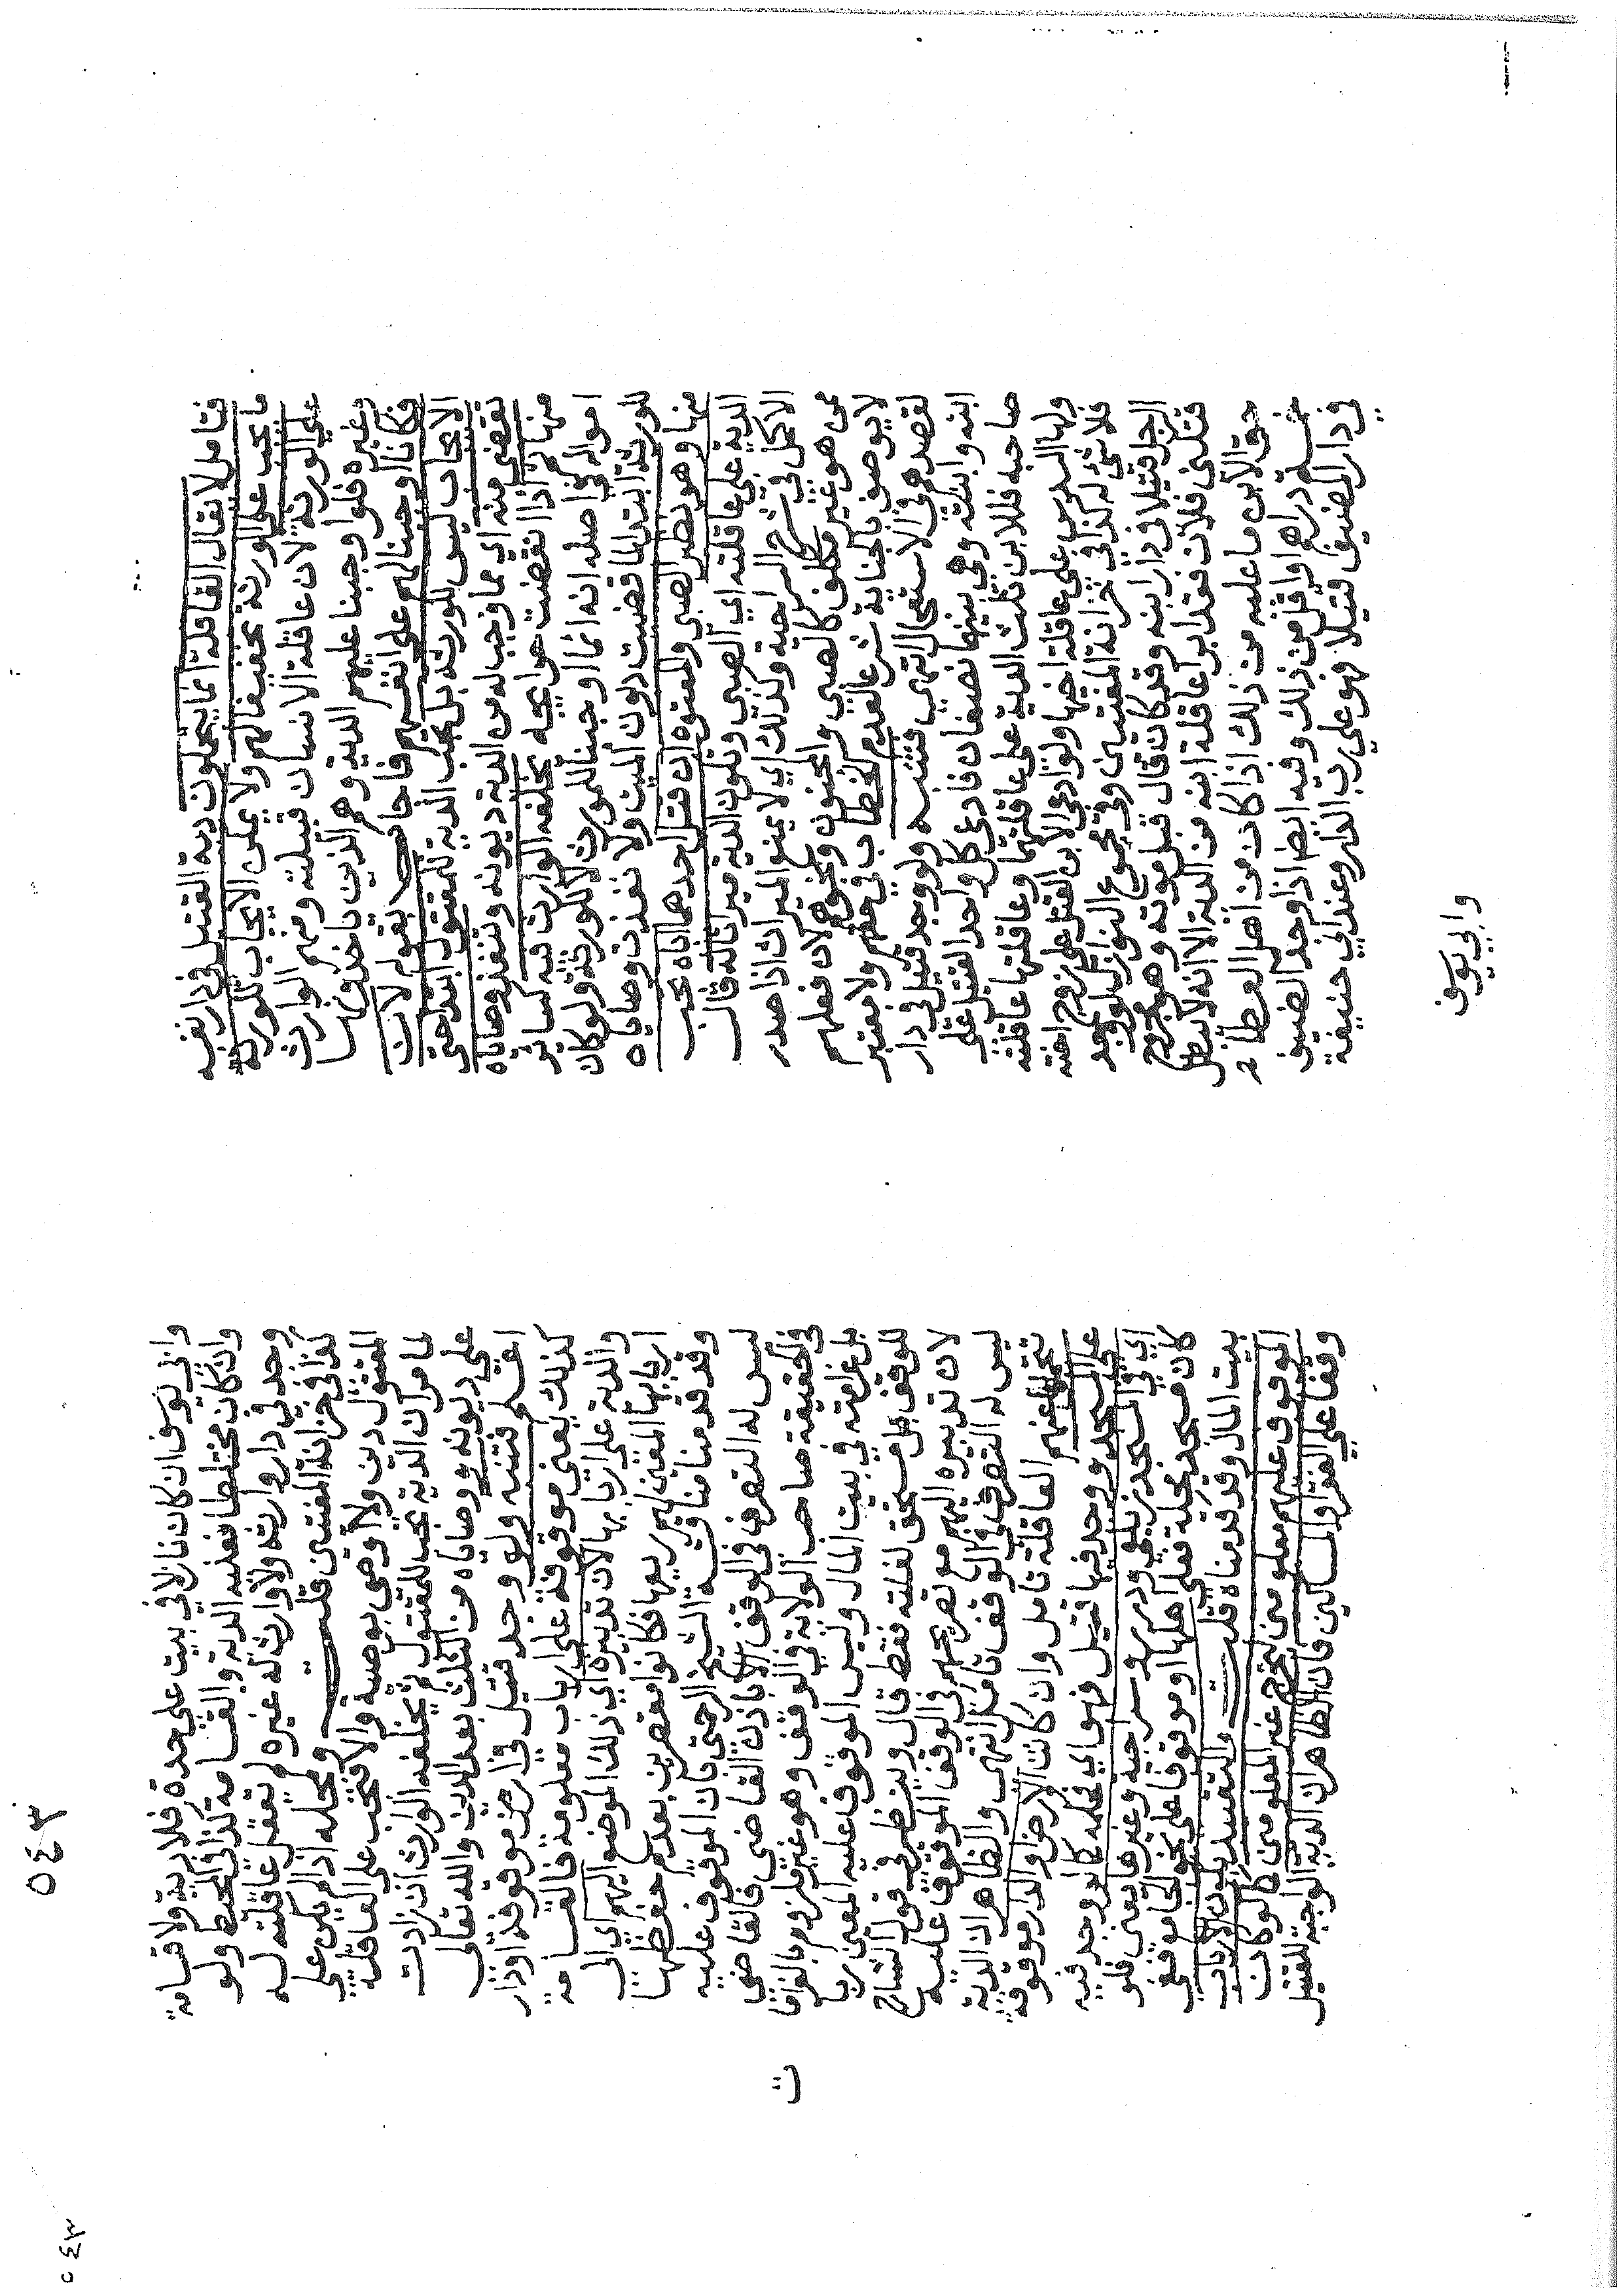 فتامل لا يقال العاقلة انما يتحملون دية القتيل في دار نفسه
ما يجب على الورثة تخفيفا لهم ولا يمكن الايجاب للورثة
على الورثة لان عاقلة الانسان قبيلته ومنهم الوارث
وغيره فلو اوجبنا عليهم الدية وهم الذين ياخذونها
فكانا اوجبنا لهم على انفسهم فاجاب بقوله لان
الايجاب ليس للورثة بل يجب الدية للمقتول ابتدا حتى
تقضى منه اي مما وجب له من الدية ديونه وتنفذ وصاياه
منها ثم اذا انقضت حوايجه يخلفه الوارث فيه كساير
امواله حاصله انه انما اوجبنا للمورث لا للورثة ولو كان
للورثة ابتدا لما قضيت ديون الميت ولا نفذت وصاياه
منها وهو نظير الصبي والمعتوه ان قتل احدهما اباه يجب
الدية على عاقلته اي الصبي وتكون الدية ميراثا له قال
الاكمل في شرح السراجية وكذلك اي لا يمنع الميراث اذا صدر
عن هو غير مكلف كالصبي والمجنون ونحوهم لان فعلهم
لا يوصف بالجناية شرعا لعدم الخطاب في حقهم ولا معتبر
لقصدهم في الاستعجال انتهى فتنبه ولو وجد قتيل في دار
ابنه وابنته وهي بينهما نصفان فادعى كل واحد القتيل على
صاحبه فللابن ثلث الدية على عاقلتها وعاقلتها عاقلته
ولها السدس على عاقلة اخيها ولو ادعى الابن القتل على زوج اخته
فلا شي له كذا في خزانة المفتين وفي مجموع النوازل لو وجد
الرجل قتيلا في دار ابنه وقد كان قال قبل موته وهو مجروح
قتلني فلان فقد ابرا عاقلة ابنه من الدية الا انه لا يبطل
حق الابن ما عليه من ذلك اذا كان من اهل العطا به
ثلاثة دراهم او اقل من ذلك وفيه ايضا اذا وجد الضيف
في دار المضيف قتيلا فهو على رب الدار وعند ابي حنيفة
وابي يوسف
٥٤٣
وابي يوسف ان كان نازلا في بيت على حدة فلا دية ولا قسامة
وان كان مختلطا فعليه الدية والقسامة كذا في المحيط ولو
وجد في دار وارثه ولا وارث له غيره لم تعقل عاقلته له
كذا في خزانة المفتين قلت ومحله اذا لم يكن على
المقتول دين ولا اوصى بوصية والا فتجب على العاقلة
لما مر ان الدية تجب للمقتول ثم يخلفه الوارث ان زادت
على ديونه ووصاياه من الثلث بعد الدين والله تعالى
اعلم فتنبه ولو وجد قتيل في ارض موقوفة او دار
كذلك يعني موقوفة على ارباب معلومة فالقسامة
والدية على اربابها لان تدبيره اي ذلك الموضع اليهم اي الى
اربابها المعين لهم ريعها فكانوا مقصرين بعدم حفظها
وقد قدمنا مناقشة الشيخ الرحمتي بان الموقوف عليه
ليس له التصرف في الوقف الا باذن القاضي فالقاضي
في الحقيقة صاحب الولاية في الوقف وهو غير ملزوم بالغرامة
بل غرامته في بيت المال وليس الموقوف عليه المعين ربا
للوقف بل مستحق لغلته فقط قال وينظر في قول الشارح
لان تدبيره اليهم مع تصريحهم في الوقف الموقوف عليه
ليس له التصرف في الوقف تامل انتهى والظاهر ان الدية
تتحملها عنهم العاقلة تامل وان كانت الارض او الدار موقوفة
على المسجد ووجد فيها قتيل فهو اي فحكمه كما لو وجد فيه
اي في المسجد زيلعي ودرر وسراجية وغيرها يعني فلو
كان مسجد محلة فعلى اهلها او موقوفا على نحو الجامع ففي
بيت المال وقد قدمناه قلت والتقييد بكون الارباب
الموقوف عليهم معلومين لتخرج غير المعلومين كما لو كان
وقفا على الفقرا والمساكين فان الظاهر ان الدية الواجبة للقتيل
٥٤٣